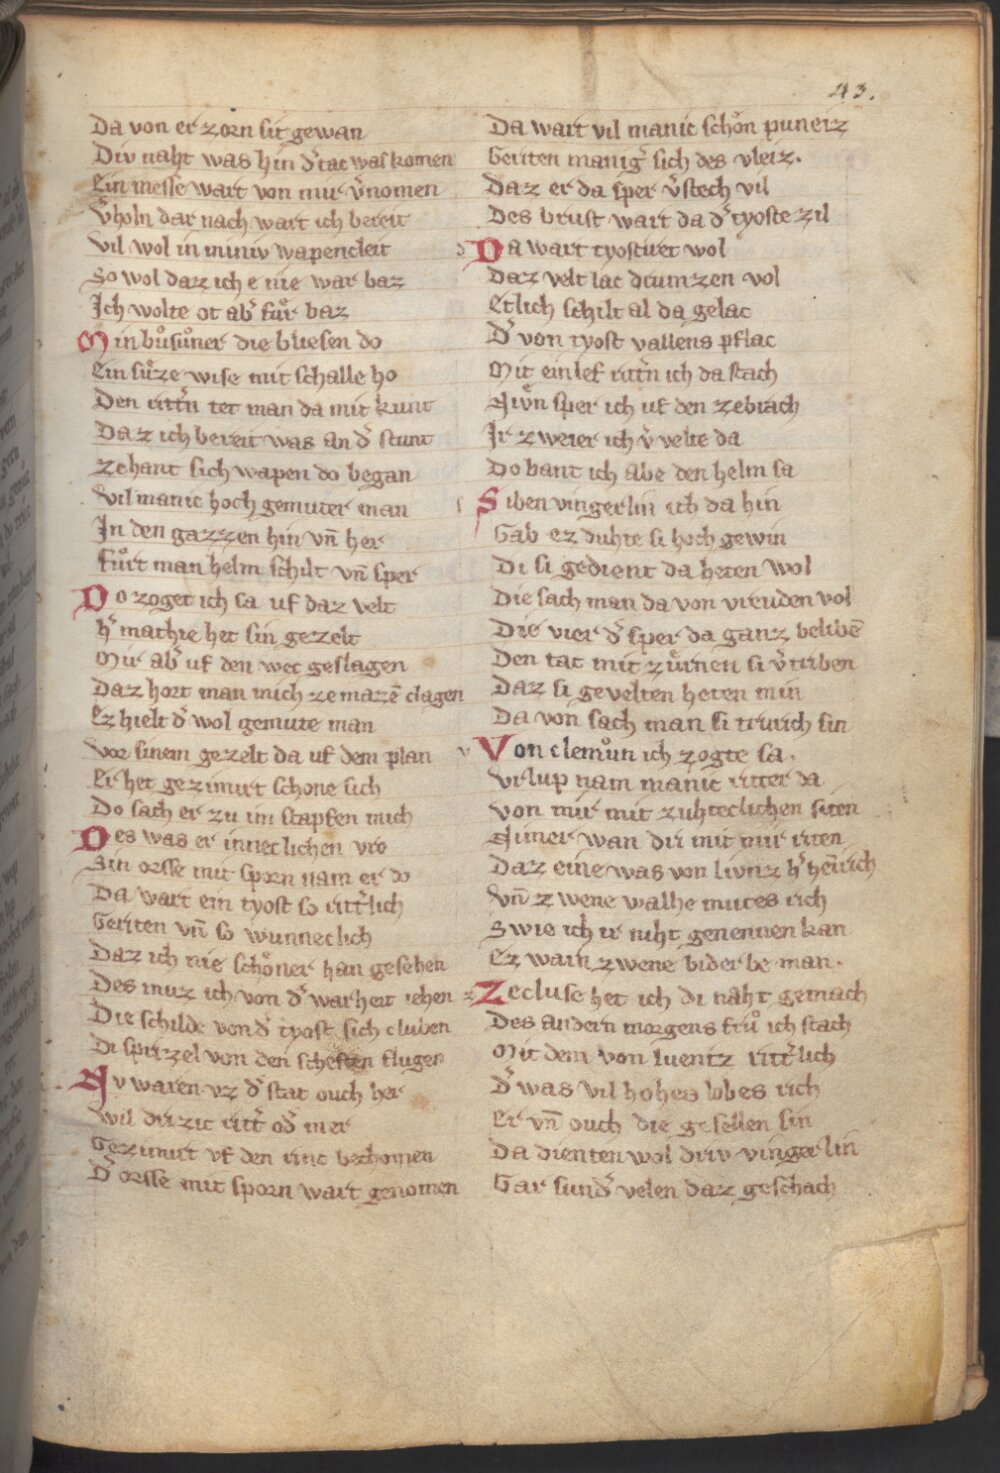 43.
Da von er zorn sit gewan
Div naht was hin dˀ tac was komen
Ein messe wart von mir vˀnomen
Vˀholn dar nach wart ich bereit
Vil wol in miniv wapencleit
So wol daz ich e nie war baz
Ich wolte ot abˀ fuͤr baz
Min buͦsuͦner die bliesen do
Ein suͤze wise mit schalle ho
Den rittˀn tet man da mit kunt
Daz ich bereit was an dˀ stunt
zehant sich wapen do began
Vil manic hoch gemuter man
In den gazzen hin vn̄ her
fuͦrt man helm schilt vn̄ sper
Do zoget ich sa uf daz velt
hˀ mathie het sin gezelt
Mir abˀ uf den wec geslagen
Daz hort man mich ze mazē clagen
Ez hielt dˀ wol gemute man
vor sinem gezelt da uf dem plan
Er het gezimirt schone sich
Do sach er zu im stapfen mich
Des was er inneclichen vro
Sin orsse mit sporn nam er do
Da wart ein tyost so rittˀlich
Geriten vn̄ so wunneclich
Daz ich nie schoͤner han gesehen
Des muz ich von dˀ warheit iehen
Die schilde von dˀ tyost sich cluben
Di sprizel von den scheften flugen
Nv waren vz dˀ stat ouch her
wil drizic rittˀ odˀ mer
Gezimirt vf den rinc bechomen
Dˀ orsse mit sporn wart genomen
Da wart vil manic schoͤn puneiz
Geriten manigˀ sich des vleiz.
Daz er da sper vˀstech vil
Des brust wart da dˀ tyoste zil
Da wart tyostiret wol
Daz velt lac drumzen vol
Etlich schilt al da gelac
Dˀ von tyost vallens pflac
Mit einlef rittˀn ich da stach
Nivͤn sper ich uf den zebrach
Ir zweier ich vˀvelte da
Do bant ich abe den helm sa
Siben vingerlin ich da hin
Gab ez duhte si hoch gewin
Di si gedient da heten wol
Die sach man da von vreuden vol
Die vier dˀ sper da ganz belibē
Den tac mit zuͤrnen si vˀtriben
Daz si gevelten heten min
Da von sach man si trurich sin
Von clemuͦn ich zogte sa.
Vrlup nam manic ritter da
von mir mit zuhteclichen siten
Niiner wan dri mit mir riten
Daz eine was von livnz hˀ heinrich
Vn̄ zwene walhe mutes rich
Swie ich ir niht genennen kan
Ez warn zwene biderbe man.
Zecluse het ich di naht gemach
Des andern morgens fruͦ ich stach
Mit dem von luentz rittˀlich
Dˀ was vil hohes lobes rich
Er vn̄ ouch die gesellen sin
Da dienten wol driv vingerlin
Gar sundˀ velen daz geschach